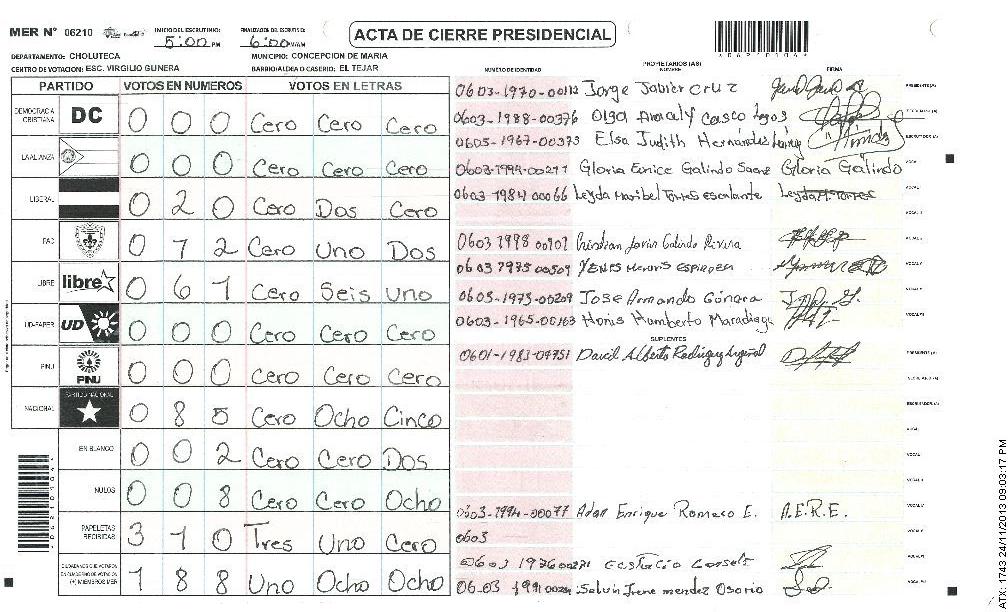 MER N° 06210
INICIO DEL ESCRUTINIO: 5:00 PM
FINALIZACION DEL ESCRUTINIO: 6:00 PM/AM
ACTA DE CIERRE PRESIDENCIAL
DEPARTAMENTO: CHOLUTECA
MUNICIPIO: CONCEPCION DE MARIA
CENTRO DE VOTACION: ESC. VIRGILIO GUNERA
BARRIO/ALDEA O CASERIO: EL TEJAR
PARTIDO VOTOS EN NUMEROS VOTOS EN LETRAS
DEMOCRACIA CRISTIANA DC 0 0 0 Cero Cero Cero
LA ALIANZA 0 0 0 Cero Cero Cero
LIBERAL 0 2 0 Cero Dos Cero
PAC 0 1 2 Cero Uno Dos
LIBRE libre 0 6 1 Cero Seis Uno
UD-FAPER UD 0 0 0 Cero Cero Cero
PINU PINU 0 0 0 Cero Cero Cero
NACIONAL PARTIDO NACIONAL 0 8 5 Cero Ocho Cinco
EN BLANCO 0 0 2 Cero Cero Dos
NULOS 0 0 8 Cero Cero Ocho
PAPELETAS RECIBIDAS 3 1 0 Tres Uno Cero
CIUDADANOS QUE VOTARON EN CUADERNO DE VOTACION (+) MIEMBROS MER 1 8 8 Uno Ocho Ocho
PROPIETARIOS (AS)
NUMERO DE IDENTIDAD NOMBRE FIRMA
Jorge Javier Cruz PRESIDENTE (A)
0603-1988-00376 Olga Aracely Casco
0605-1967-00373 Elsa Judith Hernández
Gloria Eunice Galindo Gloria Galindo
0603 1984 00066 Leyda Maribel Torres escalante Leyda M. Torres
Cristian Javier Galindo Rivera
0603-1973-00209 Jose Armando Gunara
Humberto Maradiaga
SUPLENTES
David Alberto Rodriguez PRESIDENTE (A)
SECRETARIO (A)
ESCRUTADOR (A)
VOCAL
0603-1994-00077 Adan Enrique Romero E. A.E.R.E.
0603
Eustacio
Selvin Irene mendez Osorio
ATX 1743 24/11/2013 09:03:17 PM